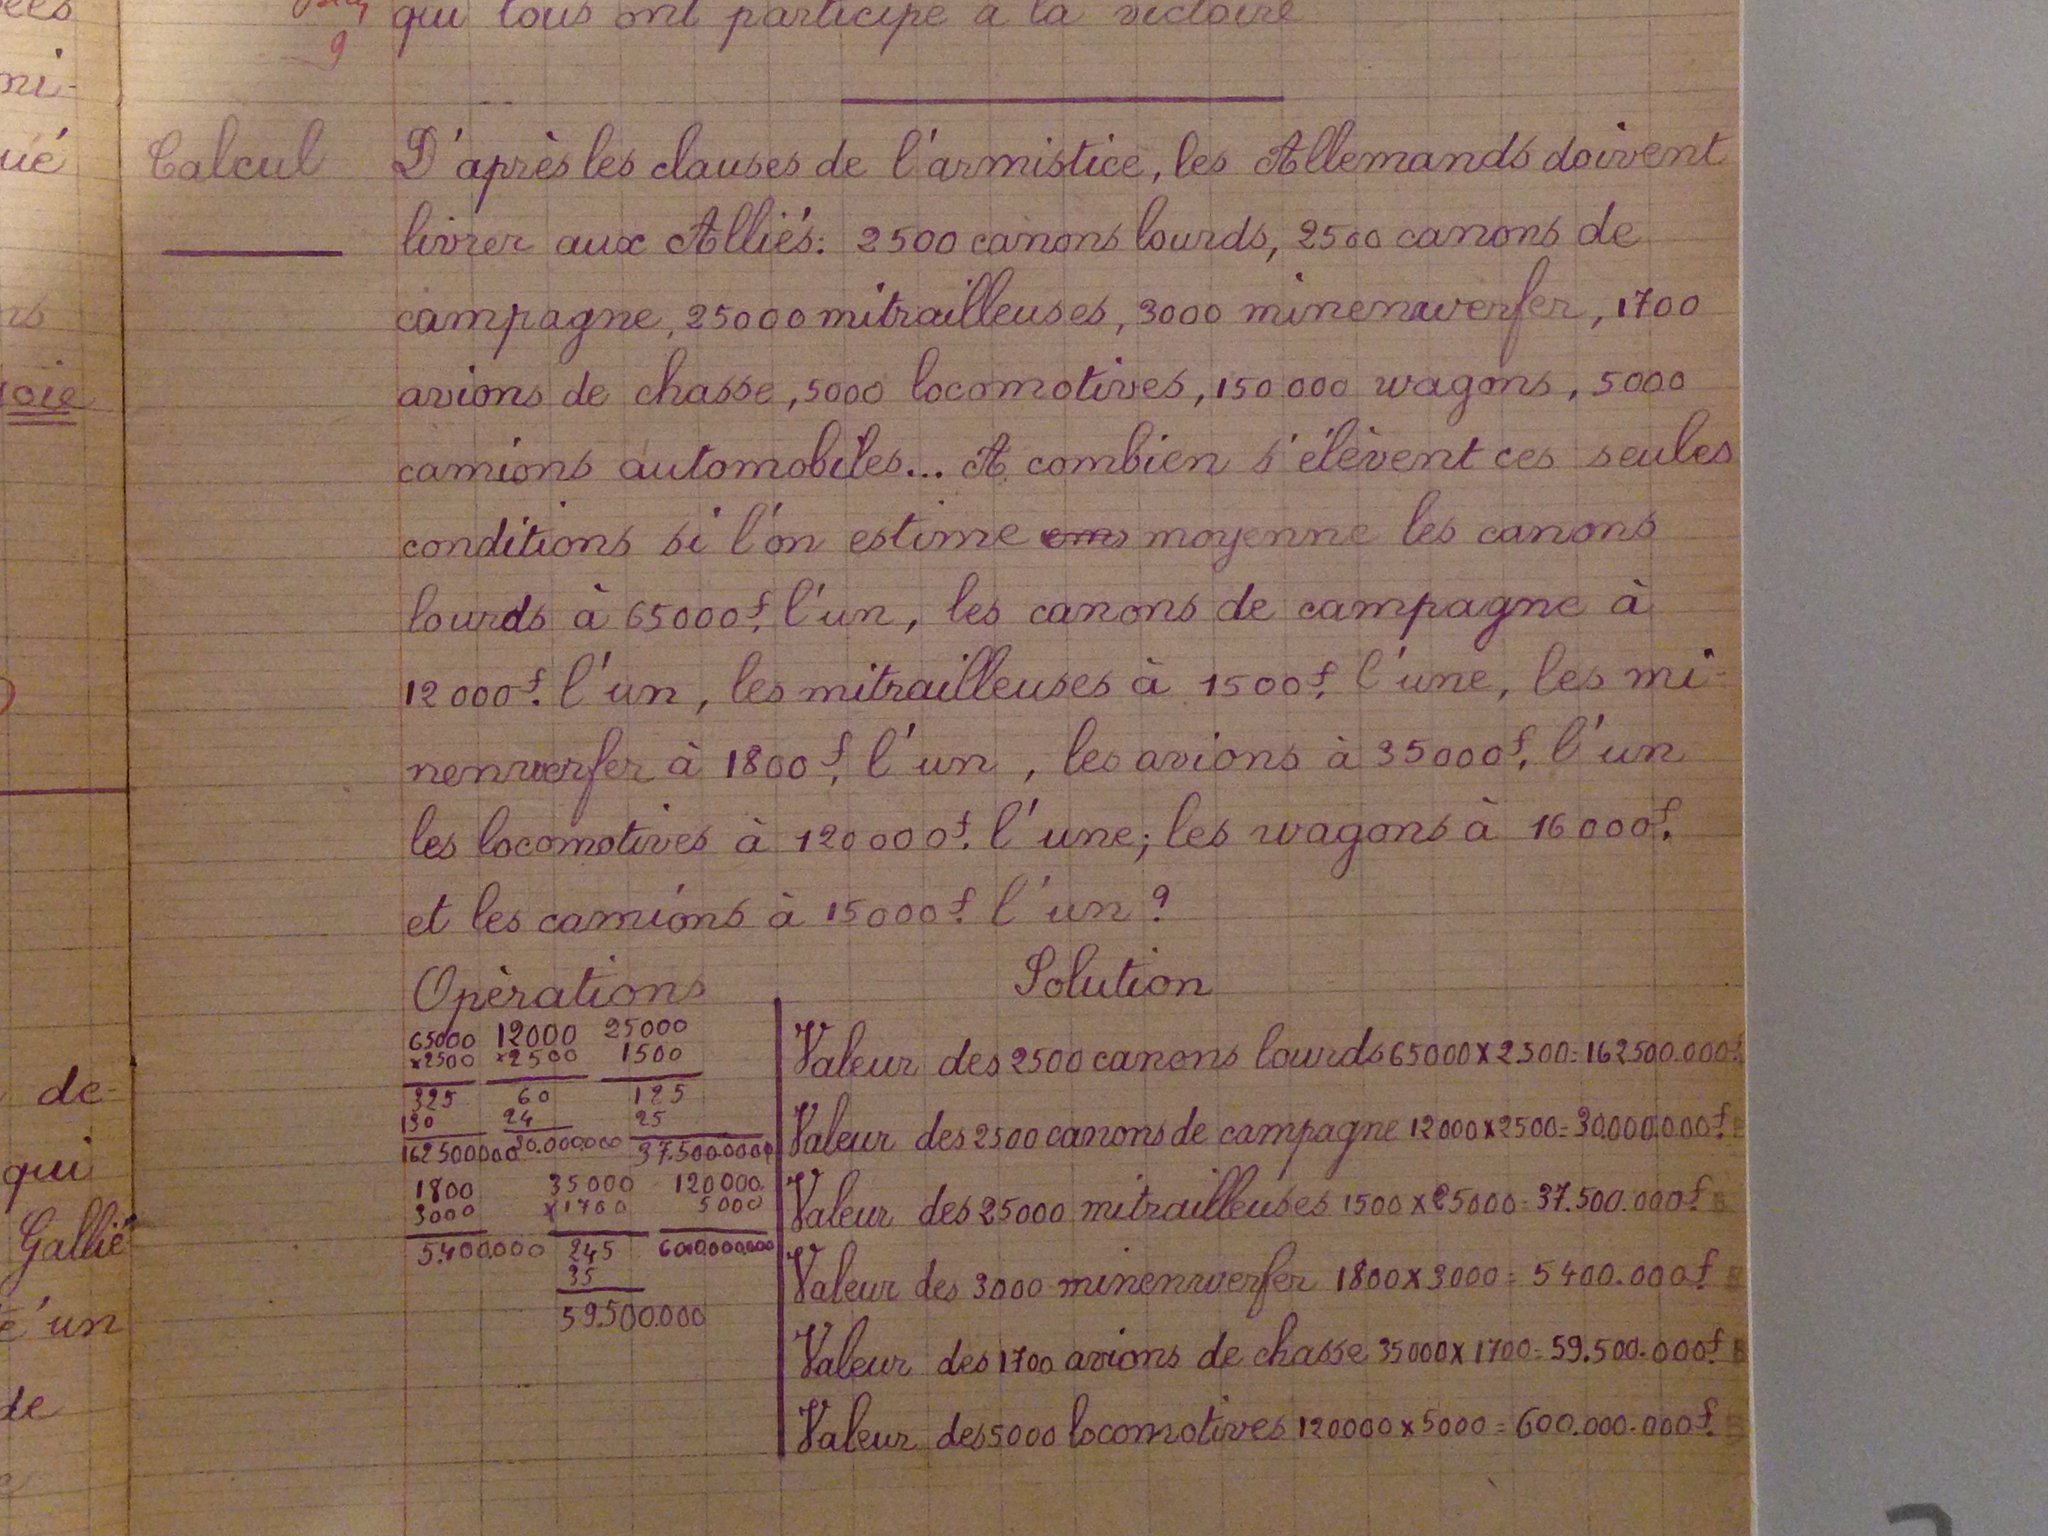 qui tous ont participé à la victoire
9
Calcul
D'après les clauses de l'armistice, les Allemands doivent
livrer aux Alliés: 2500 canons lourds, 2500 canons de
campagne, 25000 mitrailleuses, 3000 minenwerfer, 1700
avions de chasse, 5000 locomotives, 150 000 wagons, 5000
camions automobiles... A combien s'élèvent ces seules
conditions si l'on estime moyenne les canons
lourds à 65000f. l'un, les canons de campagne à
12 000f. l'un, les mitrailleuses à 1500f. l'une, les mi-
nenwerfer à 1800f. l'un, les avions à 35000f. l'un
les locomotives à 120 000f. l'une; les wagons à 16 000f.
et les camions à 15000f. l'un?
Opérations
65000 12000 25000
×2500 ×2500 1500
325 60 125
130 24 25
162500000 30.000.000 37.500.000
1800 35000 120000
3000 ×1700 5000
5.400.000 245 600.000.000
35
59.500.000
Solution
Valeur des 2500 canons lourds 65000×2500=162500.000f.
Valeur des 2500 canons de campagne 12000×2500=30.000.000f.
Valeur des 25000 mitrailleuses 1500×25000=37.500.000f.
Valeur des 3000 minenwerfer 1800×3000=5400.000f.
Valeur des 1700 avions de chasse 35000×1700=59.500.000f.
Valeur des 5000 locomotives 120000×5000=600.000.000f.
mi-
ué
oie
de-
qui
Gallié
un
de